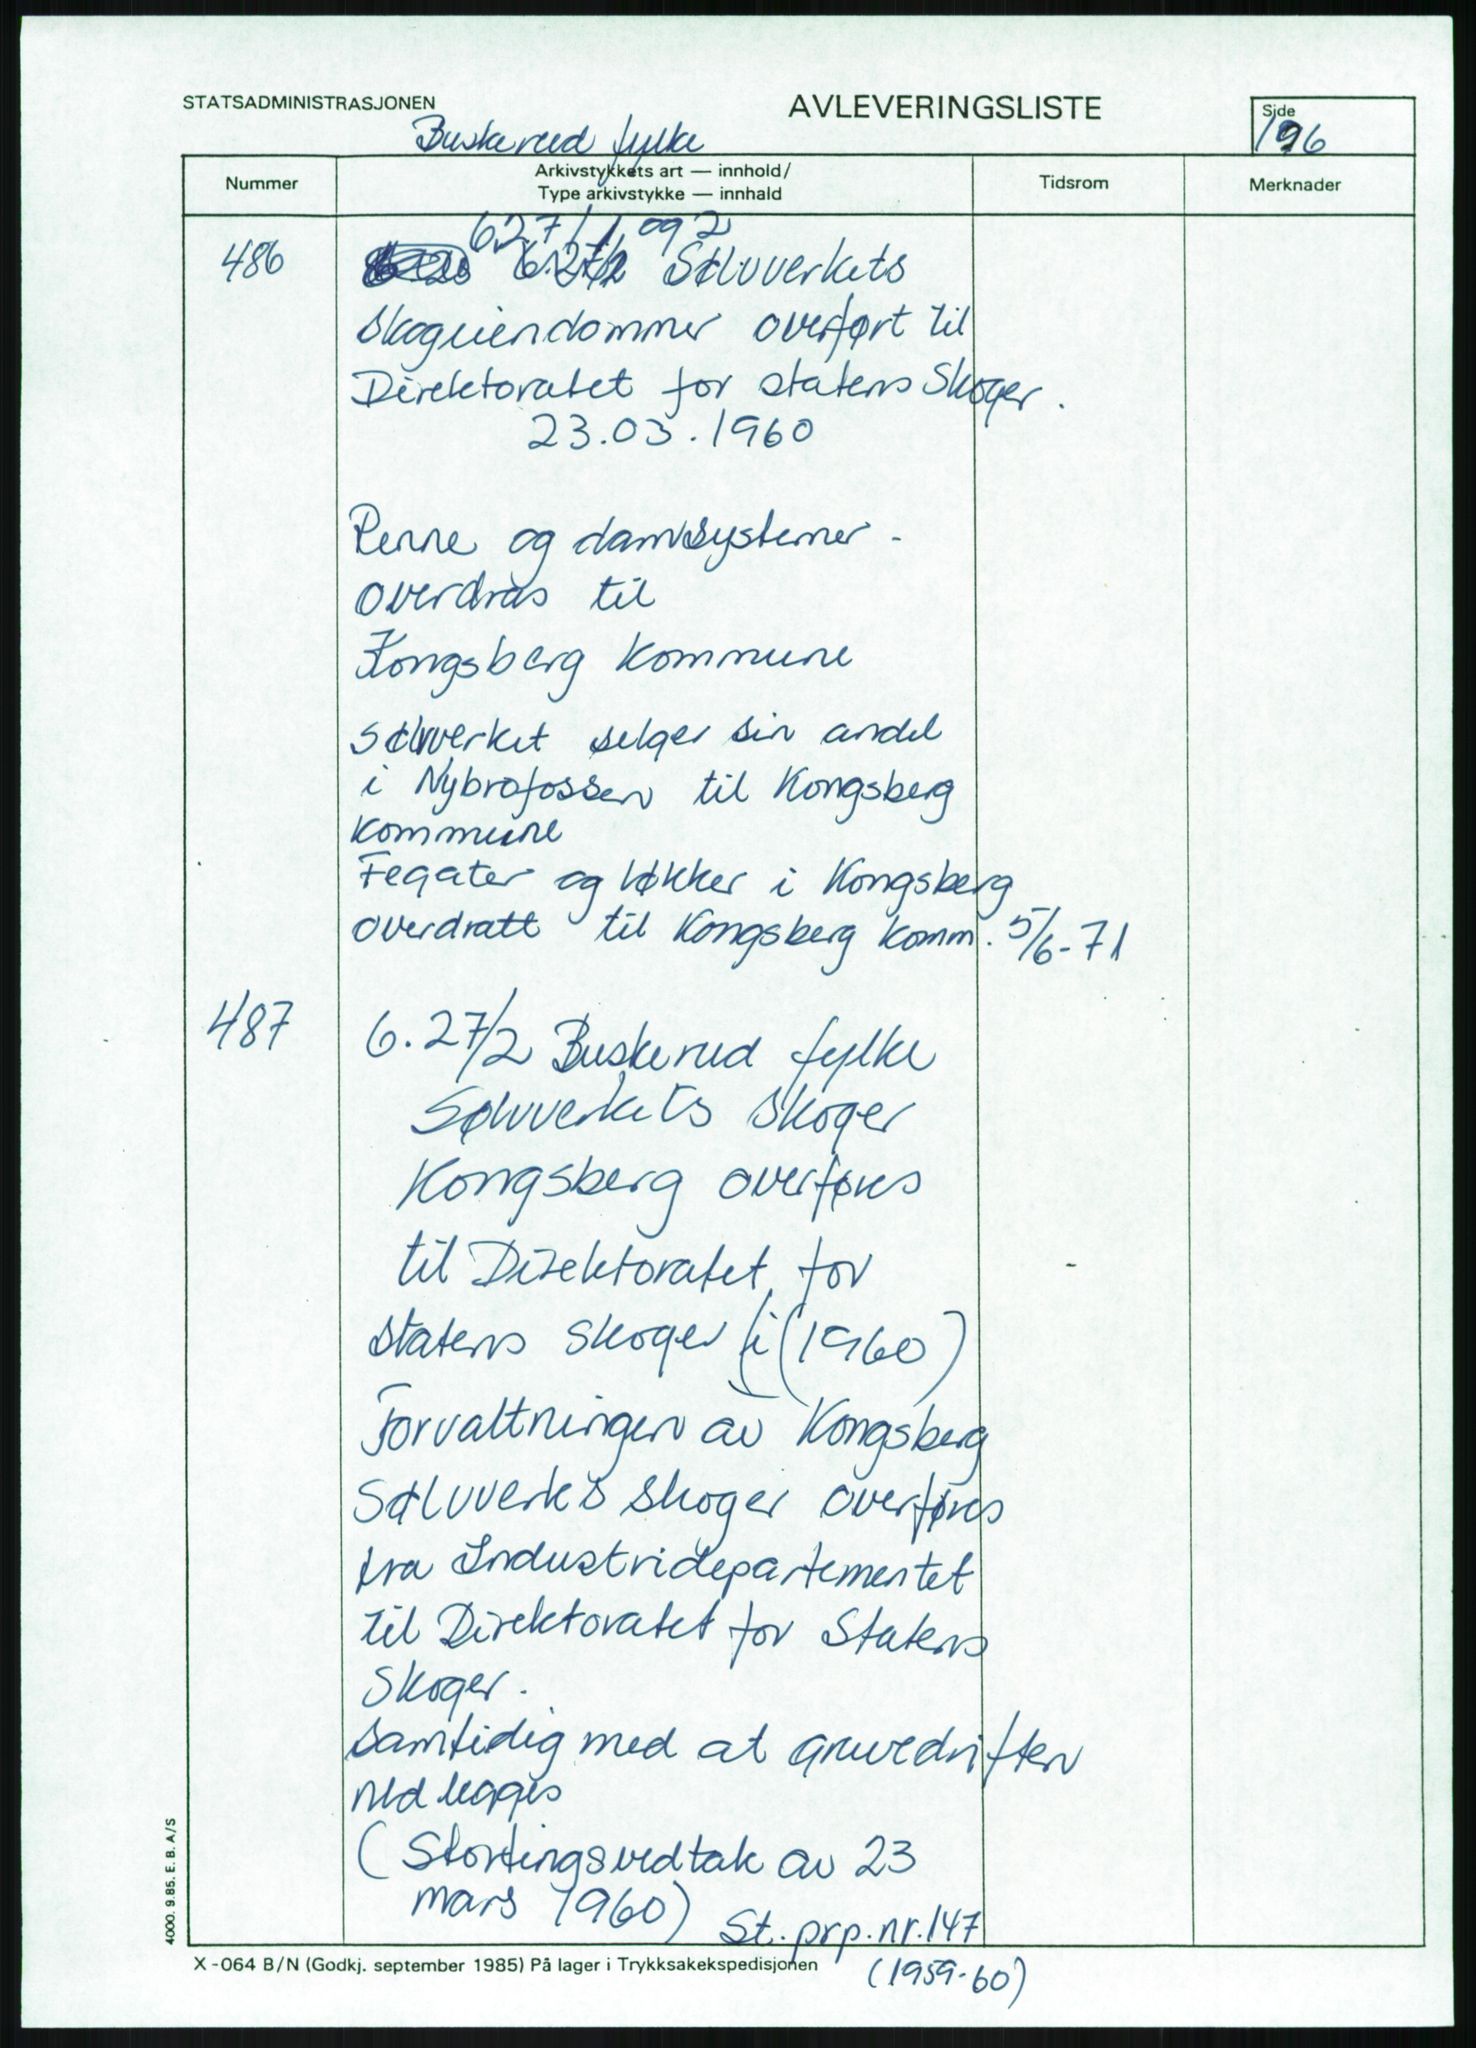 STATSADMINISTRASJONEN
AVLEVERINGSLISTE
Side
196
Buskerud fylke
Nummer
Arkivstykkets art — innhold/
Type arkivstykke — innhald
Tidsrom
Merknader
6.27/1 og 2
486 6.27/2 Sølvverkets
Skogeiendommer overført til
Direktoratet for statens Skoger.
23.03.1960
Renne og damsystemer -
overdras til
Kongsberg kommune
Sølvverket selger sin andel
i Nybrofossen til Kongsberg
kommune
Fegater og løkker i Kongsberg
overdratt til Kongsberg komm. 5/6-71
487 6.27/2 Buskerud fylke
Sølvverkets skoger
Kongsberg overføres
til Direktoratet for
statens skoger i (1960)
Forvaltningen av Kongsberg
Sølvverks skoger overføres
fra Industridepartementet
til Direktoratet for Statens
Skoger.
samtidig med at gruvedriften
nedlegges
(Stortingsvedtak av 23
mars 1960)
St. prp. nr. 147
(1959-60)
4000. 9.85. E. B. A/S
X-064 B/N (Godkj. september 1985) På lager i Trykksakekspedisjonen